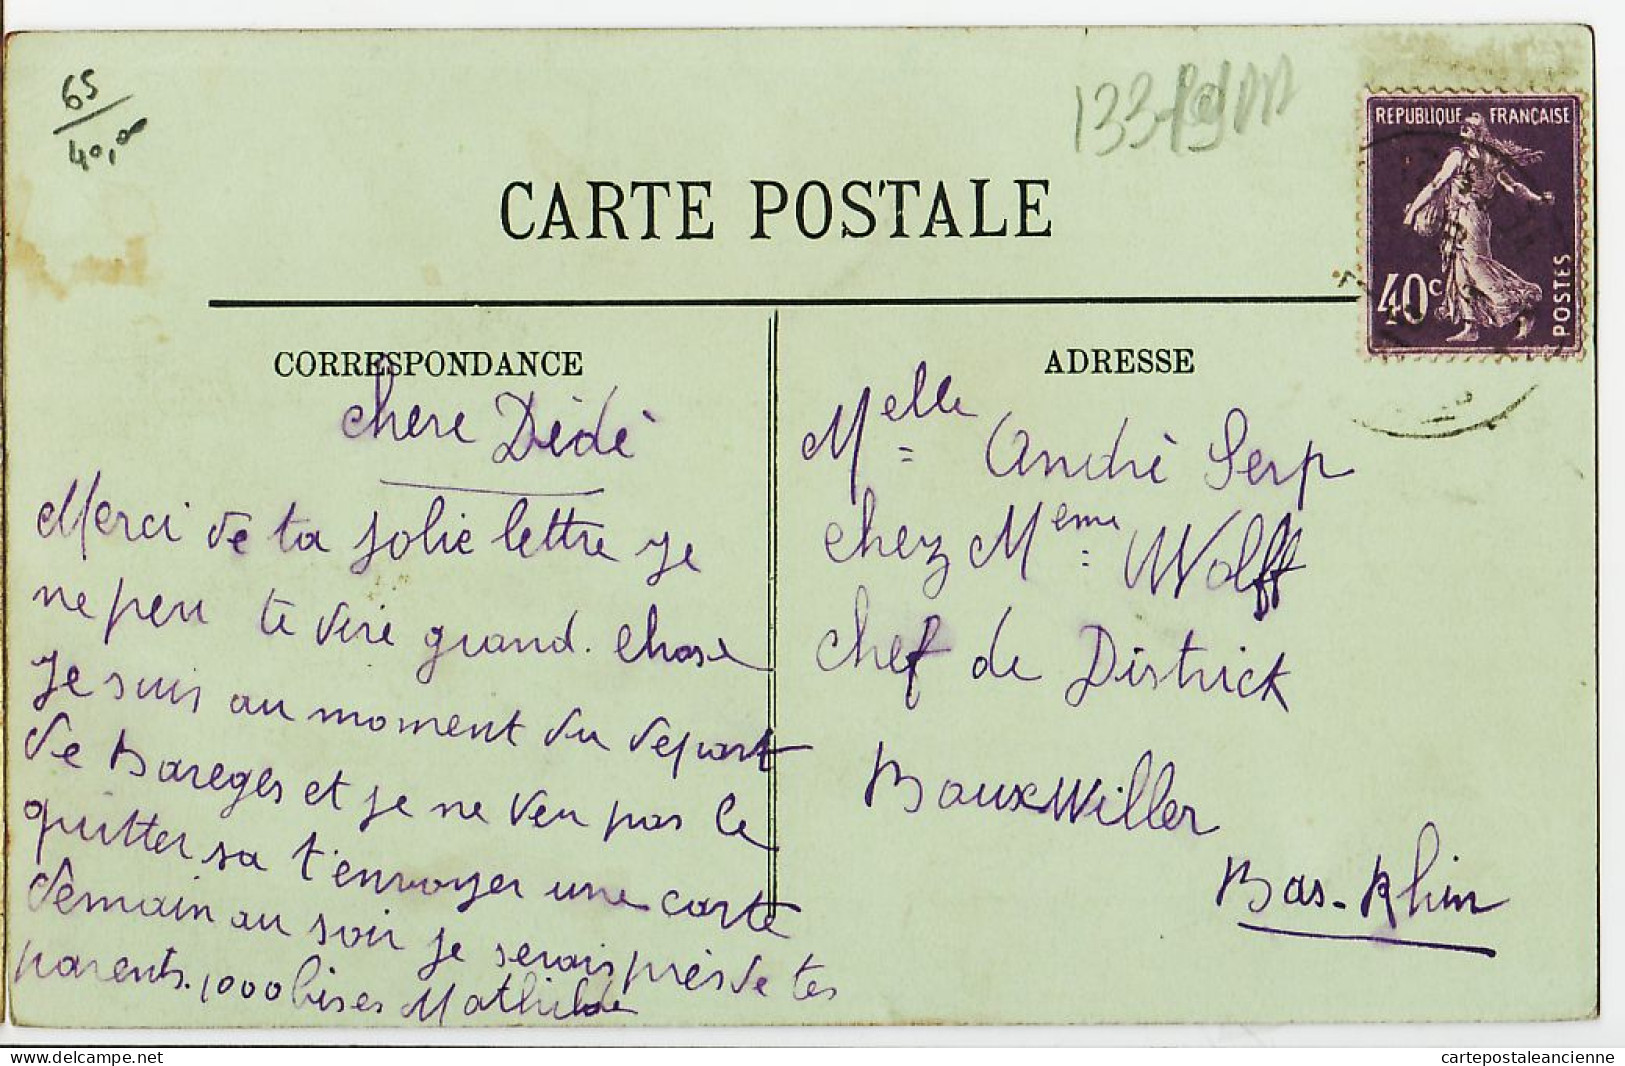 65
40,00
133
CARTE POSTALE
REPUBLIQUE FRANÇAISE
40c
POSTES
CORRESPONDANCE
chere Dédé
Merci de ta jolie lettre je
ne peu te dire grand. chose
je suis au moment du depart
de Bareges et je ne veu pas le
quitter sa t'envoyer une carte
demain au soir je serais près de tes
parents. 1000 bises Mathilde
ADRESSE
Melle André Serp
chez Meme Wolff
chef de District
Bouxwiller
Bas-Rhin
cartepostaleancienne